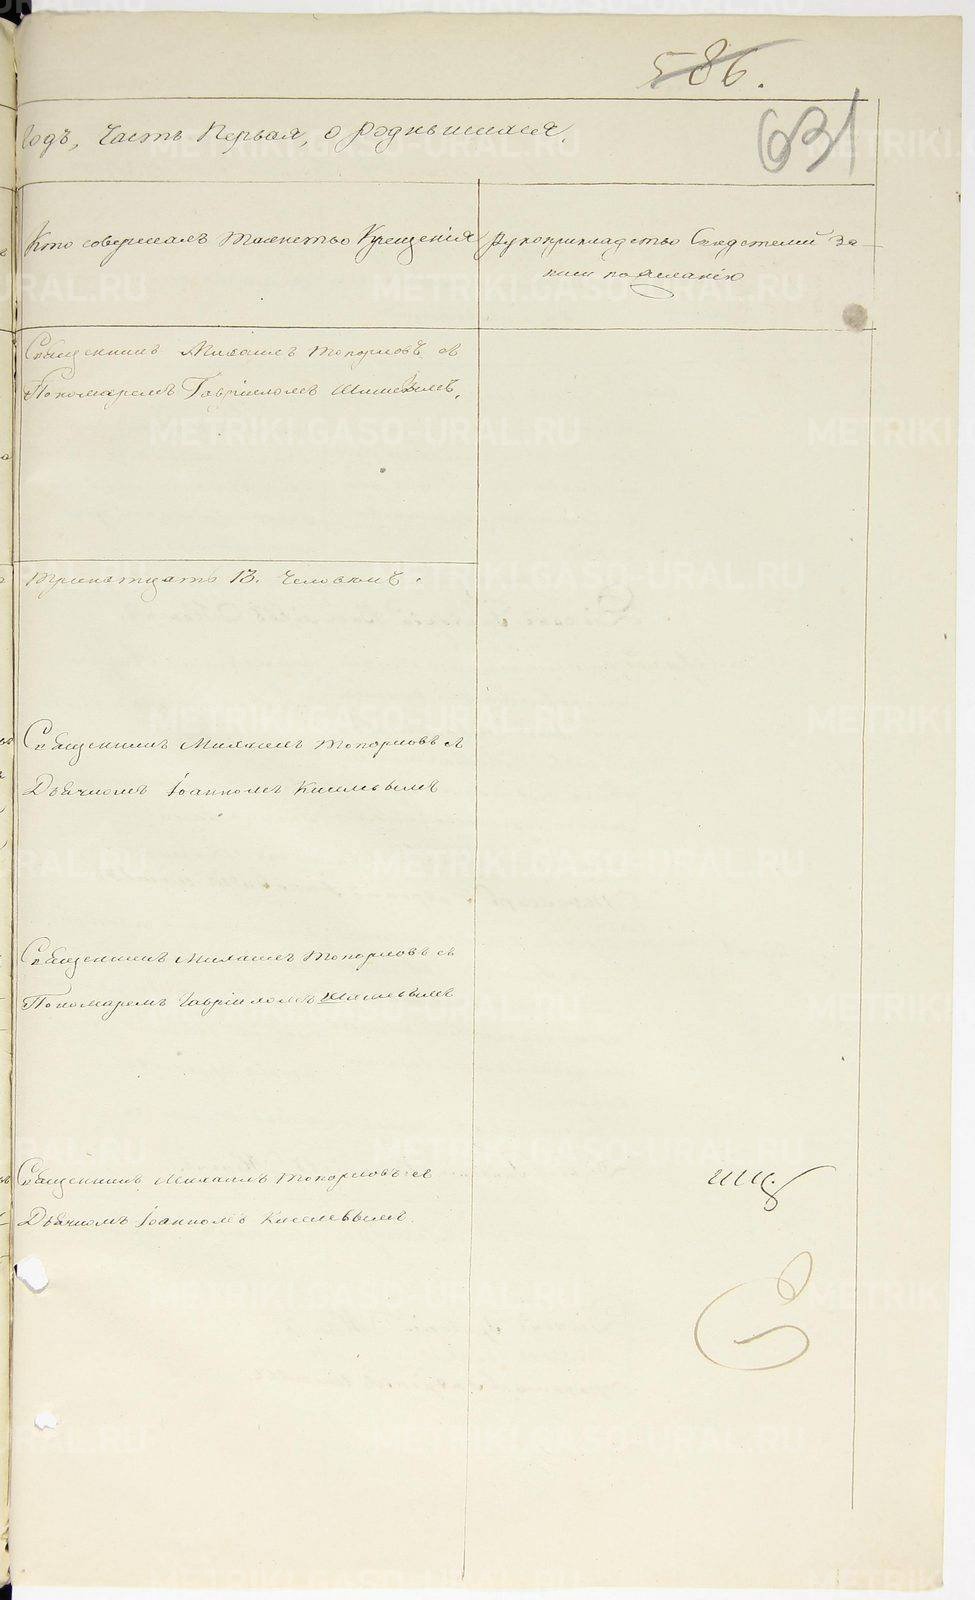 586.
631
Годъ, Часть Первая, о родившихся.
Кто совершалъ таинство Крещенія
Рукоприкладство Свидетелей за-
писи по желанію
Священникъ Михаилъ Топорковъ съ
Пономаремъ Гавріиломъ
тринатцать 13. человекъ.
Священникъ Михаилъ Топорковъ съ
Дьячкомъ Іоанномъ Киселевымъ
Священникъ Михаилъ Топорковъ съ
Пономаремъ Гавріиломъ
Священникъ Михаилъ Топорковъ съ
Дьячкомъ Іоанномъ Киселевымъ.
METRIKI.GASO-URAL.RU